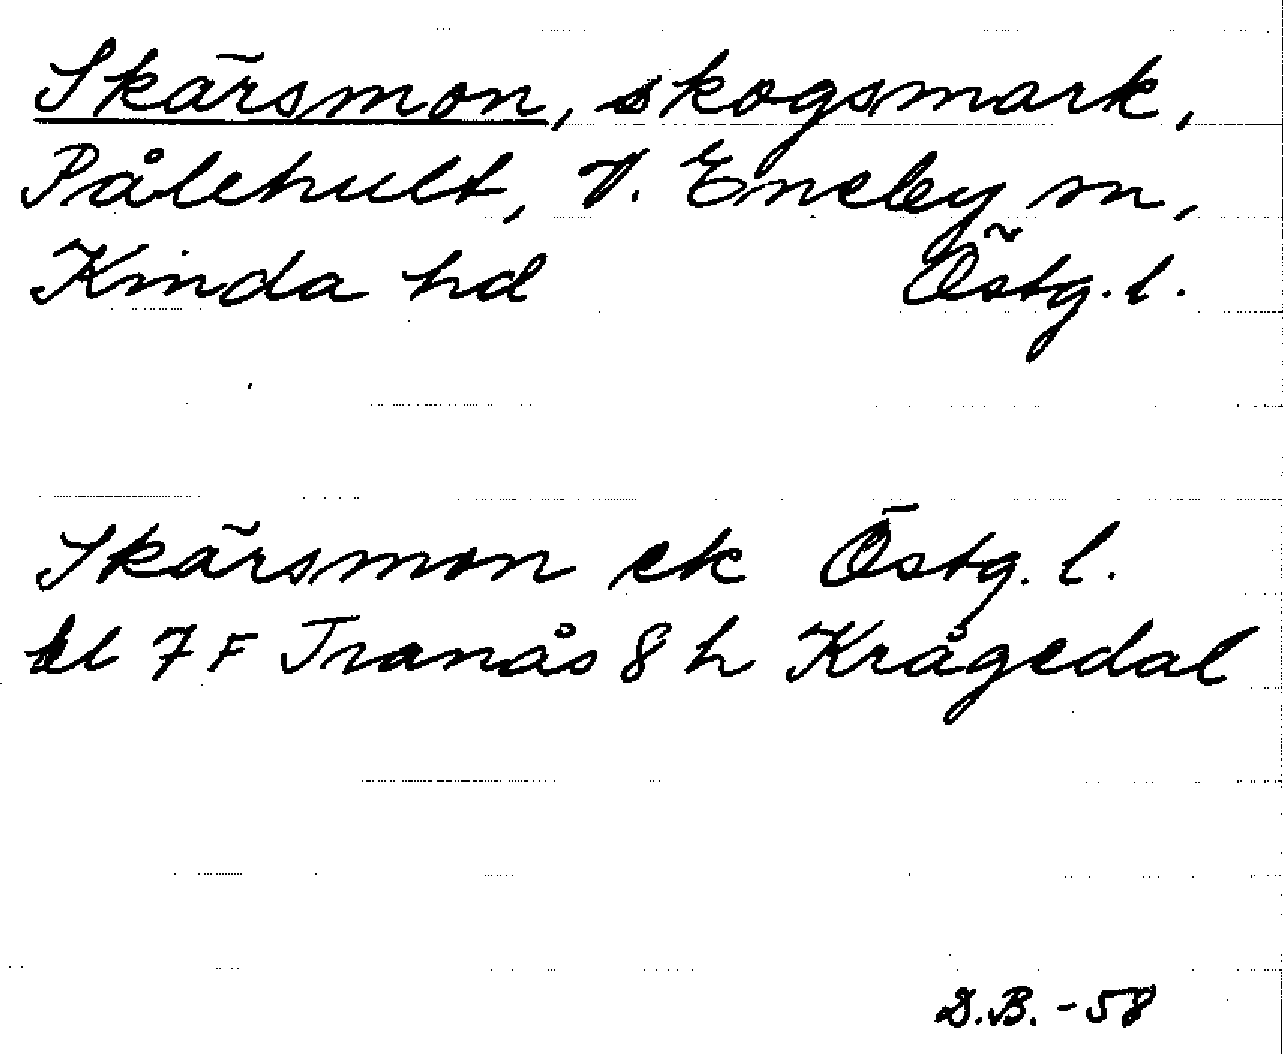 Skärsmon, skogsmark,
Pålehult, V. Eneby sn,
Kinda hd Östg. l.
Skärsmon ek Östg. l.
bl 7 F Tranås 8 h Krågedal
D.B. - 58